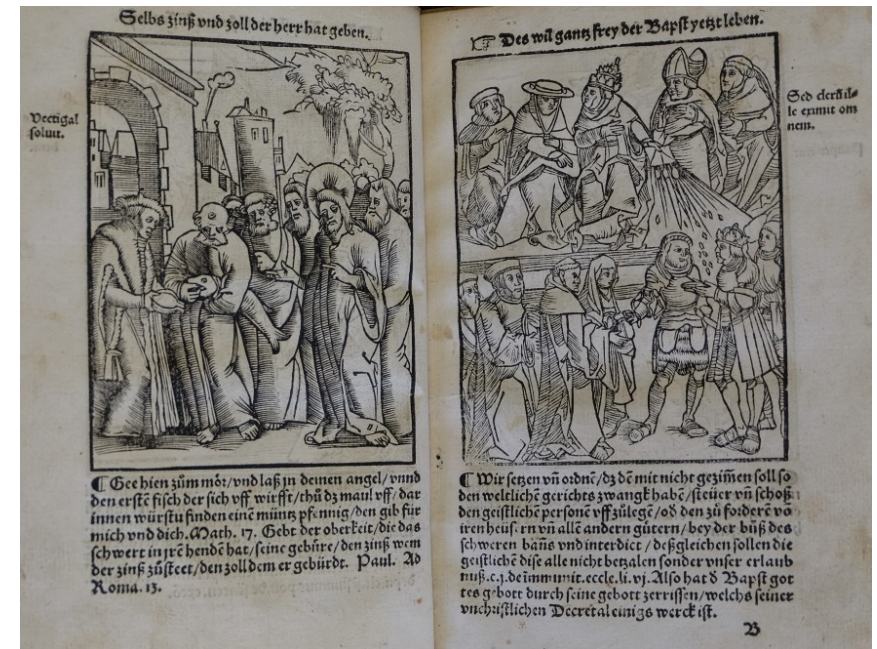 Selbs zinß vnd zoll der herr hat geben.
Vectigal
soluit.
¶ Gee hien zům möꝛ/vnd laß jn deinen angel/vnnd
den erstē fisch der sich vff wirfft/thů dz maul vff/dar
innen würstu finden einē müntz pfennig/den gib für
mich vnd dich. Math. 17. Gebt der oberkeit/die das
schwert in jrē hende hat/seine gebüre/den zinß wem
der zinß zůsteet/den zoll dem er gebürdt. Paul. Ad
Roma. 13.
☞ Des wil gantz frey der Bapst yetzt leben.
Sed clerū il-
le exmit om
nem.
¶ Wir setzen vñ ordnē/dz dē mit nicht gezimen soll so
den weltlichē gerichts zwangk habē/steüer vñ schoß
den geistlichē personē vff zůlegē/oð den zů forderē vō
iren heüs.rn vñ allē andern gütern/bey der bůß des
schweren bāns vnd interdict/deßgleichen sollen die
geistlichē dise alle nicht betzalen sonder vnser erlaub
nuß.c.j.de immunit.eccle.li.vj. Also hat ð Bapst got
tes gebott durch seine gebott zerrissen/welchs seiner
vnchristlichen Decretal einigs werck ist.
B